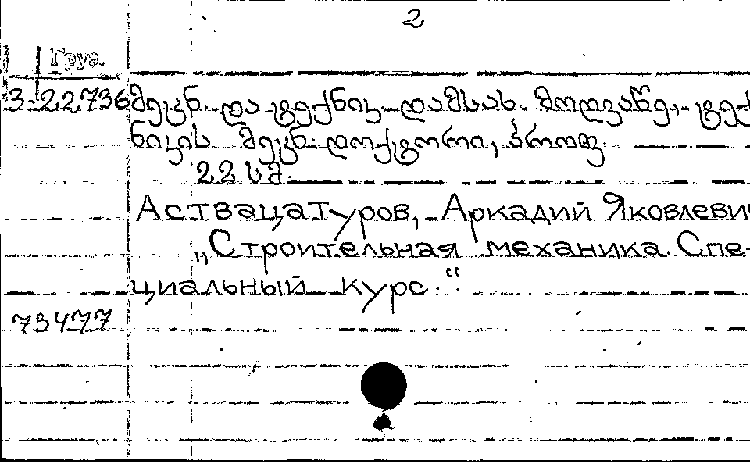 2
Груз.
3-22736 მეცნ. და ტექნიკ. დამსახ. მოღვაწე, ტექ
ნიკის მეცნ. დოქტორი, პროფ.
22 სმ.
Аствацатуров, Аркадий Яковлеви
„Строительная механика. Спе-
циальный курс.“
73477